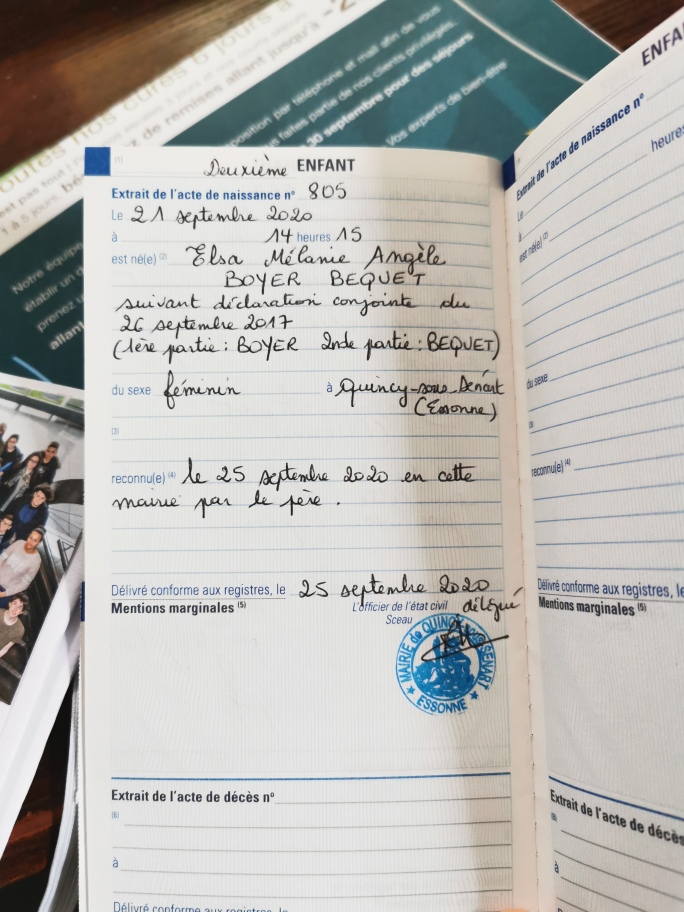 outes nos cures 6 jours à -2
est pas tout !
z de remises allant jusqu'à
1 à 5 jours,
position par téléphone et mail afin de vous
us faites partie de nos clients privilégiés,
30 septembre pour des séjours
Vos experts de bien-être
Notre équipe
établir un d
prenez
allant
(1)
Deuxième ENFANT
Extrait de l'acte de naissance nº 805
Le 21 septembre 2020
à 14 heures 15
est né(e) (2) Elsa Mélanie Angèle
BOYER BEQUET
suivant déclaration conjointe du
26 septembre 2017
(1ère partie : BOYER 2nde partie : BEQUET)
du sexe féminin à Quincy-sous-Sénart
(Essonne)
(3)
reconnu(e) (4) le 25 septembre 2020 en cette
mairie par le père .
Délivré conforme aux registres, le 25 septembre 2020
Mentions marginales (5)
L'officier de l'état civil délégué
Sceau
MAIRIE de QUINCY SENART
★ ESSONNE ★
Extrait de l'acte de décès nº
(6)
à
Délivré conforme aux registres, le
ENFAN
Extrait de l'acte de naissance nº
Le
à
heures
est né(e) (2)
du sexe
(3)
reconnu(e) (4)
Délivré conforme aux registres, le
Mentions marginales (5)
Extrait de l'acte de décès
(6)
à